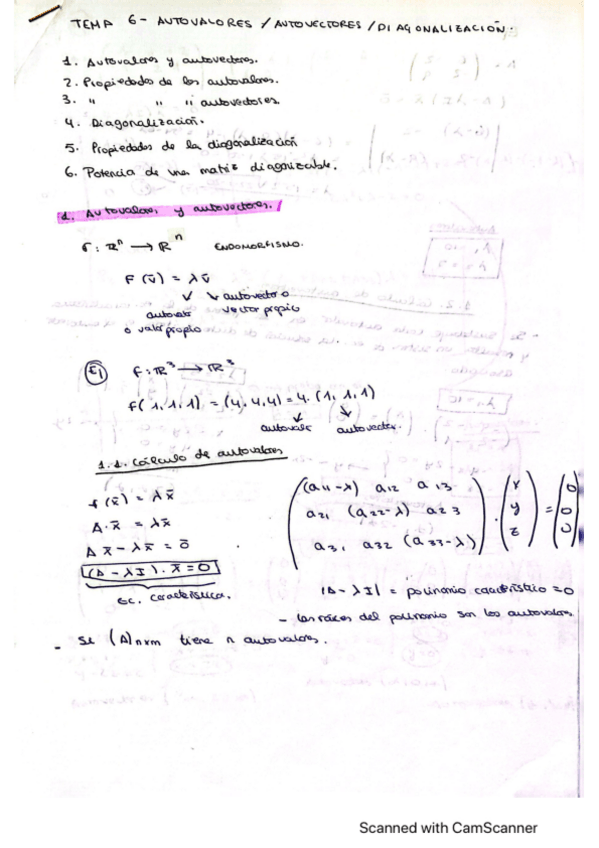 TEMA 6 - AUTOVALORES / AUTOVECTORES / DIAGONALIZACIÓN.
1. Autovalores y autovectores.
2. Propiedades de los autovalores.
3. " " " autovectores.
4. Diagonalización.
5. Propiedades de la diagonalización
6. Potencia de una matriz diagonizable.
1. Autovalores y autovectores.
f: ℝⁿ → ℝⁿ ENDOMORFISMO.
F(v̄) = λv̄
autovector o
vector propio
autovalor
o valor propio
Ej f: ℝ³ → ℝ³
f(1,1,1) = (4,4,4) = 4·(1,1,1)
autovalor autovector.
1.1. Cálculo de autovalores
f(x̄) = λx̄
A·x̄ = λx̄
Ax̄ - λx̄ = 0̄
(A - λI)·x̄ = 0
ec. característica.
(a11-λ) a12 a13 x 0
a21 (a22-λ) a23 · y = 0
a31 a32 (a33-λ) z 0
|A - λI| = polinomio característico = 0
- Las raíces del polinomio son los autovalores.
- Si (A)nxn tiene n autovalores.
Scanned with CamScanner